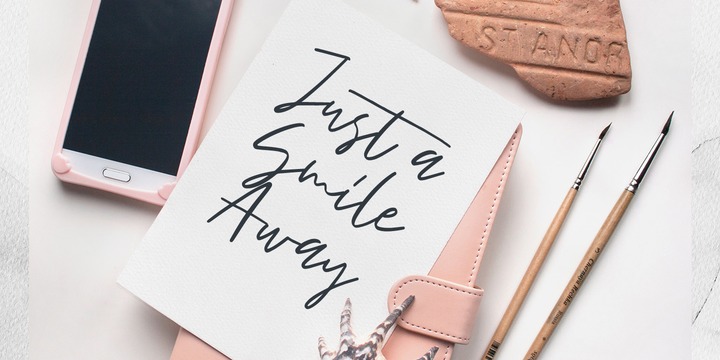 Just a
Smile
Away
ST ANDR